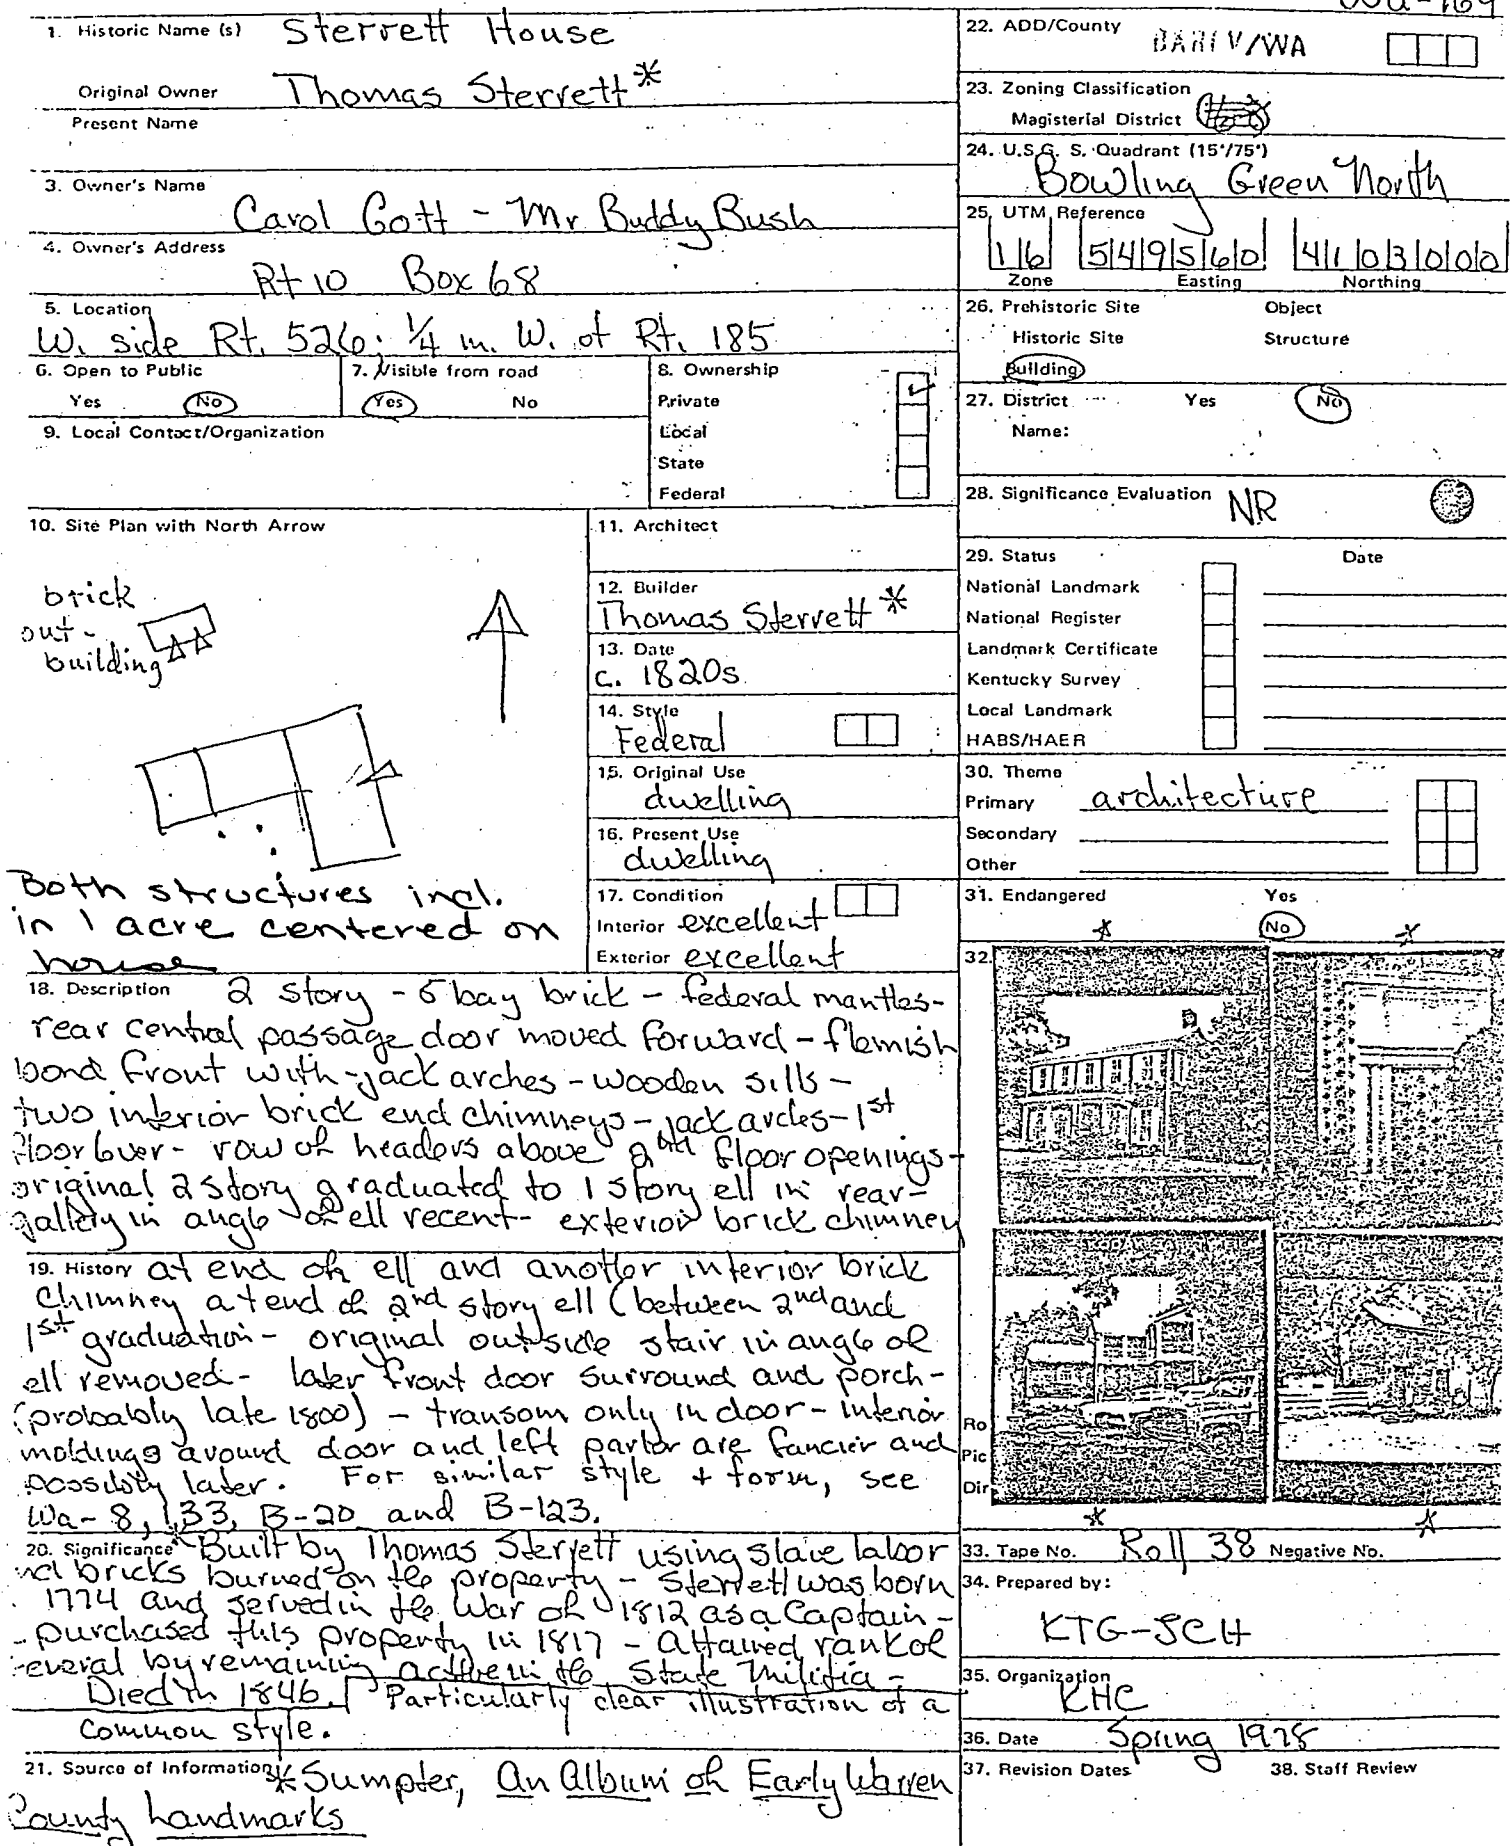 Wa-169
1. Historic Name (s) Sterrett House
Original Owner Thomas Sterrett*
Present Name
3. Owner's Name
Carol Gott - Mr Buddy Bush
4. Owner's Address
Rt 10 Box 68
5. Location
W. side Rt. 526; 1/4 m. W. of Rt. 185
6. Open to Public
Yes No
7. Visible from road
Yes No
8. Ownership
Private
Local
State
Federal
9. Local Contact/Organization
10. Site Plan with North Arrow
brick
out-
building
Both structures incl.
in 1 acre centered on
house
11. Architect
12. Builder
Thomas Sterrett *
13. Date
c. 1820s
14. Style
Federal
15. Original Use
dwelling
16. Present Use
dwelling
17. Condition
Interior excellent
Exterior excellent
18. Description 2 story - 5 bay brick - federal mantles-
rear central passage door moved forward - flemish
bond front with jack arches - wooden sills -
two interior brick end chimneys - jack arches - 1st
floor over - row of headers above 2nd floor openings -
original 2 story graduated to 1 story ell in rear -
gallery in angle of ell recent - exterior brick chimney
19. History at end of ell and another interior brick
chimney at end of 2nd story ell (between 2nd and
1st graduation - original outside stair in angle of
ell removed - later front door surround and porch -
(probably late 1800) - transom only in door - interior
moldings around door and left parlor are fancier and
possibly later. For similar style + form, see
Wa-8, 133, B-20 and B-123.
20. Significance *Built by Thomas Sterrett using slave labor
nd bricks burned on the property - Sterrett was born
1774 and served in the War of 1812 as a Captain -
- purchased this property in 1817 - Attained rank of
eneral by remaining active in the State Militia -
Died in 1846. Particularly clear illustration of a
common style.
21. Source of Information * Sumpter, An Album of Early Warren
County Landmarks
22. ADD/County BAREV/WA
23. Zoning Classification
Magisterial District
24. U.S.G. S. Quadrant (15°/75°)
Bowling Green North
25. UTM Reference
16 549560 4103000
Zone Easting Northing
26. Prehistoric Site Object
Historic Site Structure
Building
27. District Yes No
Name:
28. Significance Evaluation NR
29. Status Date
National Landmark
National Register
Landmark Certificate
Kentucky Survey
Local Landmark
HABS/HAER
30. Theme
Primary architecture
Secondary
Other
31. Endangered Yes
No
32.
Ro
Pic
Dir
33. Tape No. Roll 38 Negative No.
34. Prepared by:
KTG-JCH
35. Organization
KHC
36. Date Spring 1978
37. Revision Dates 38. Staff Review